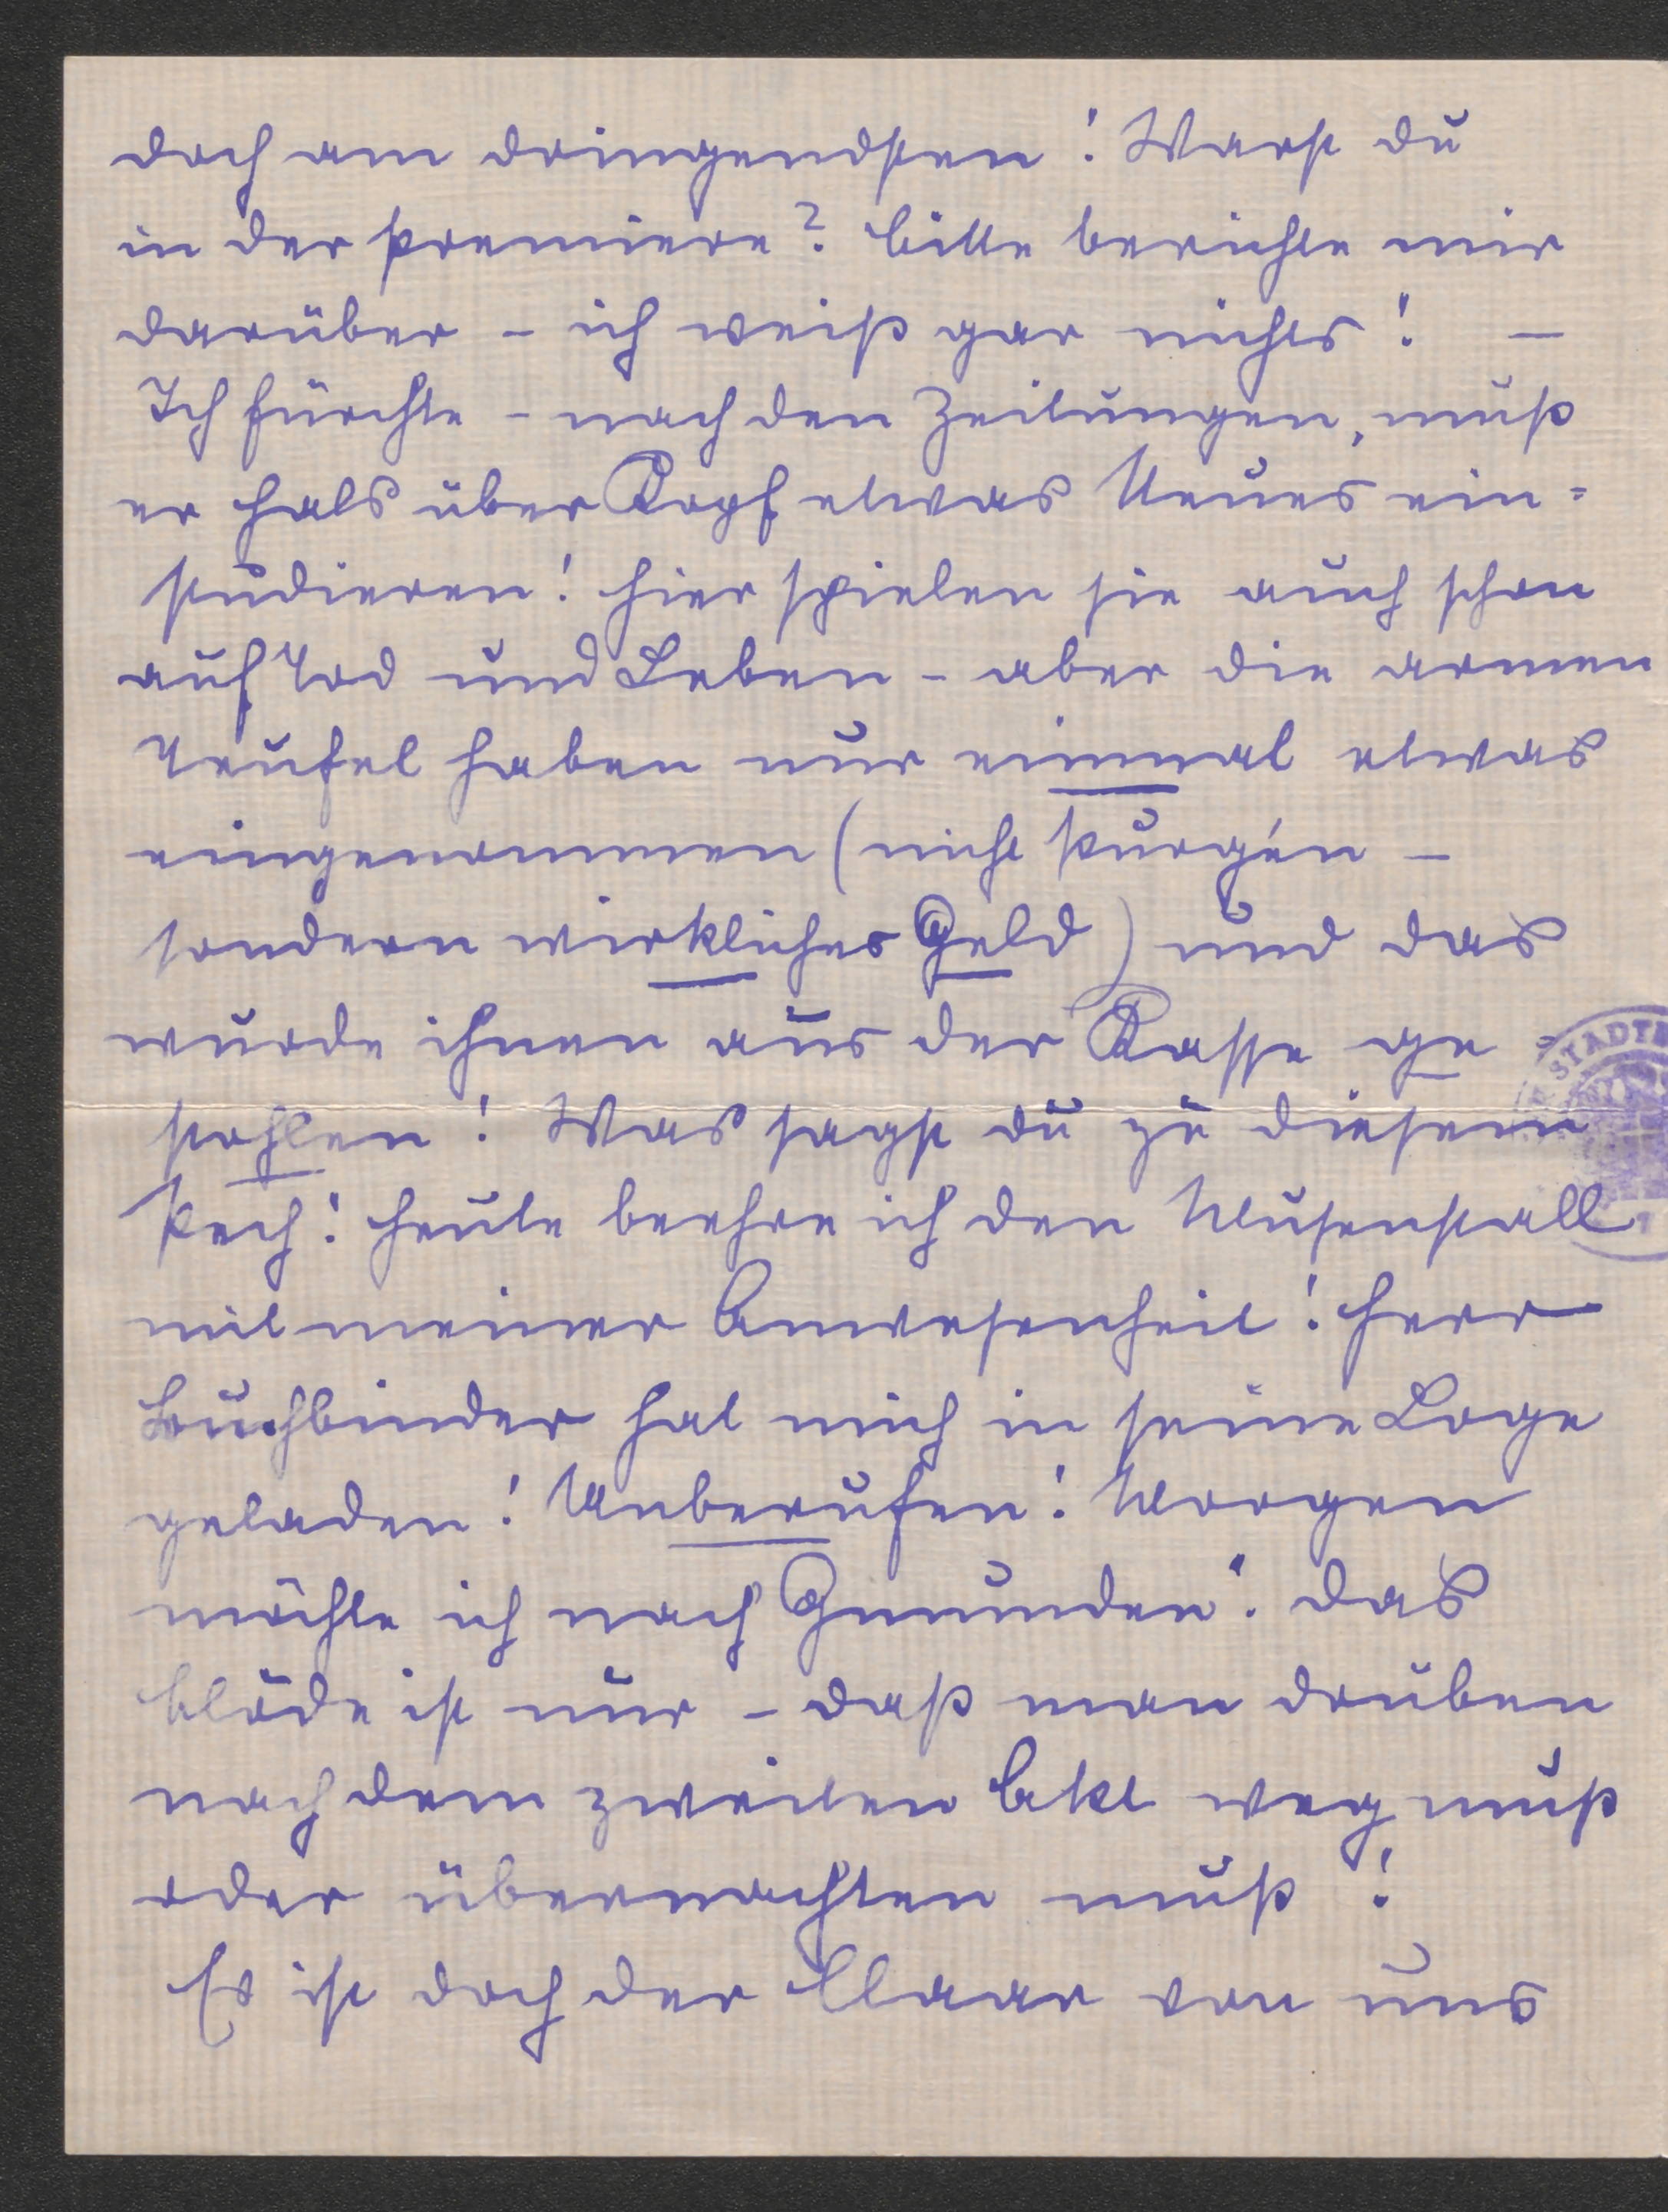 doch am dringendsten! Warst du
in der Premiere? bitte berichte mir
darüber – ich weiß gar nichts! –
Ich fürchte – nach den Zeitungen, muß
er Hals über Kopf etwas Neues ein=
studieren! Hier spielen sie auch schon
auf Tod und Leben – aber die armen
Teufel haben nur einmal etwas
eingenommen (nicht Purgén –
sondern wirkliches Geld) und das
wurde ihnen aus der Kasse ge
stohlen! Was sagst du zu diesem
Pech! Heute beehre ich den Musenstall
mit meiner Anwesenheit! Herr
Buchbinder hat mich in seine Loge
geladen! Unberufen! Morgen
möchte ich nach Gmunden! das
blöde ist nur – daß man drüben
nach dem zweiten Akt weg muß
oder übernachten muß!
Es ist doch der Claar von uns
STADT